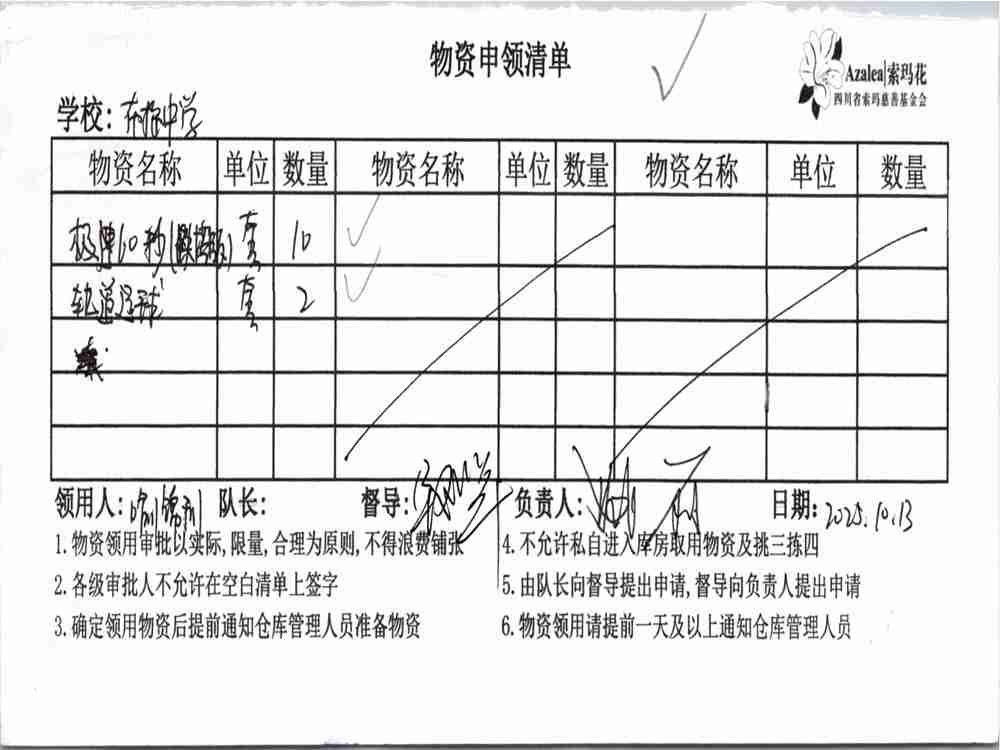 物资申领清单
Azalea|索玛花
四川省索玛慈善基金会
学校: 中学
物资名称 单位 数量 物资名称 单位 数量 物资名称 单位 数量
极速60秒 套 10
轨道 套 2
领用人: 队长: 督导: 负责人: 日期: 2025.10.13
1.物资领用审批以实际,限量,合理为原则,不得浪费铺张
2.各级审批人不允许在空白清单上签字
3.确定领用物资后提前通知仓库管理人员准备物资
4.不允许私自进入库房取用物资及挑三拣四
5.由队长向督导提出申请,督导向负责人提出申请
6.物资领用请提前一天及以上通知仓库管理人员